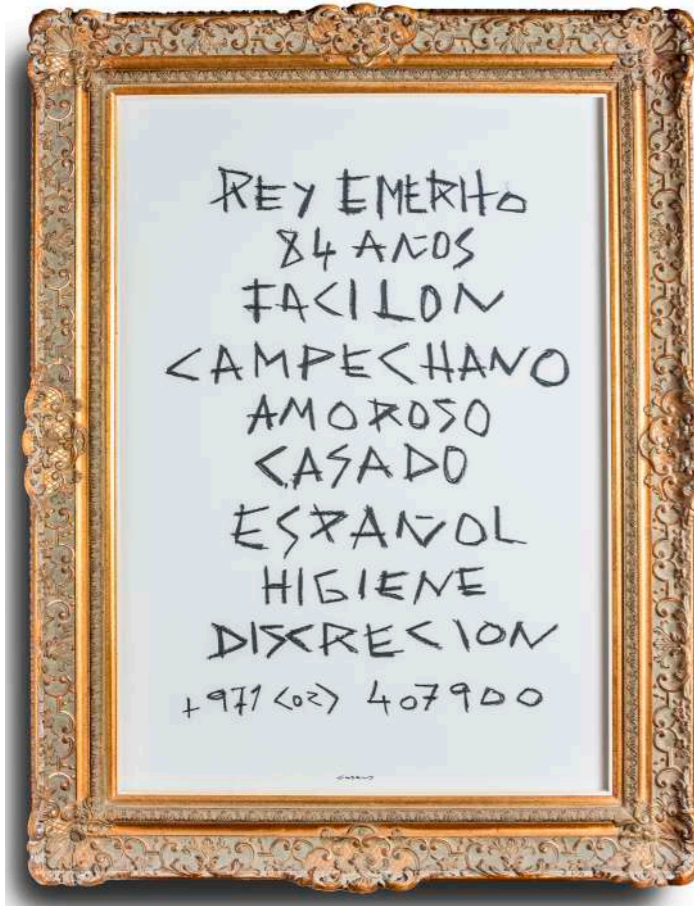 REY EMERITO
84 AÑOS
FACILON
CAMPECHANO
AMOROSO
CASADO
ESPAÑOL
HIGIENE
DISCRECION
+971 <02> 407900